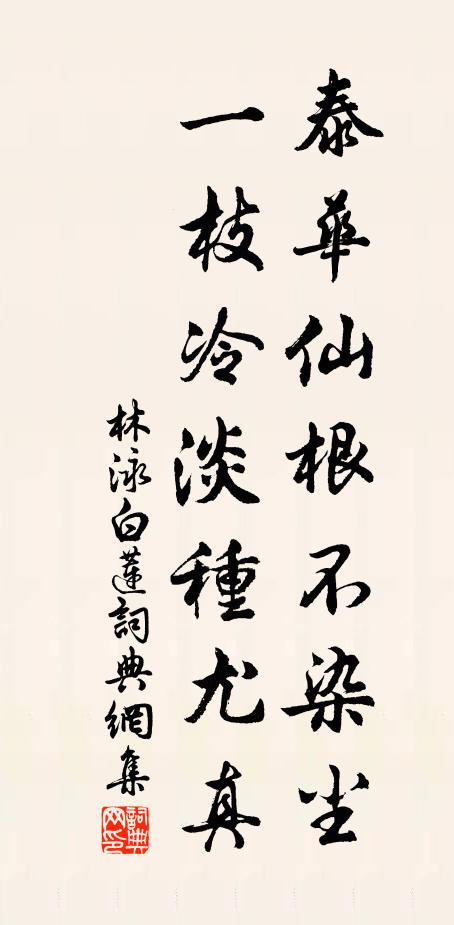 泰華仙根不染尘
一枝冷淡種尤真
林泳白蓮詞典網集
詞典网印